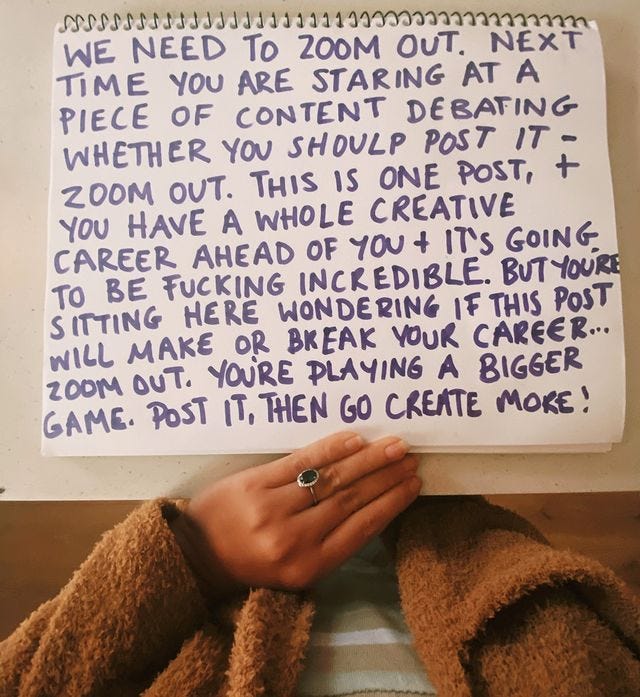 WE NEED TO ZOOM OUT. NEXT
TIME YOU ARE STARING AT A
PIECE OF CONTENT DEBATING
WHETHER YOU SHOULD POST IT -
ZOOM OUT. THIS IS ONE POST, +
YOU HAVE A WHOLE CREATIVE
CAREER AHEAD OF YOU + IT'S GOING
TO BE FUCKING INCREDIBLE. BUT YOU'RE
SITTING HERE WONDERING IF THIS POST
WILL MAKE OR BREAK YOUR CAREER...
ZOOM OUT. YOU'RE PLAYING A BIGGER
GAME. POST IT, THEN GO CREATE MORE!